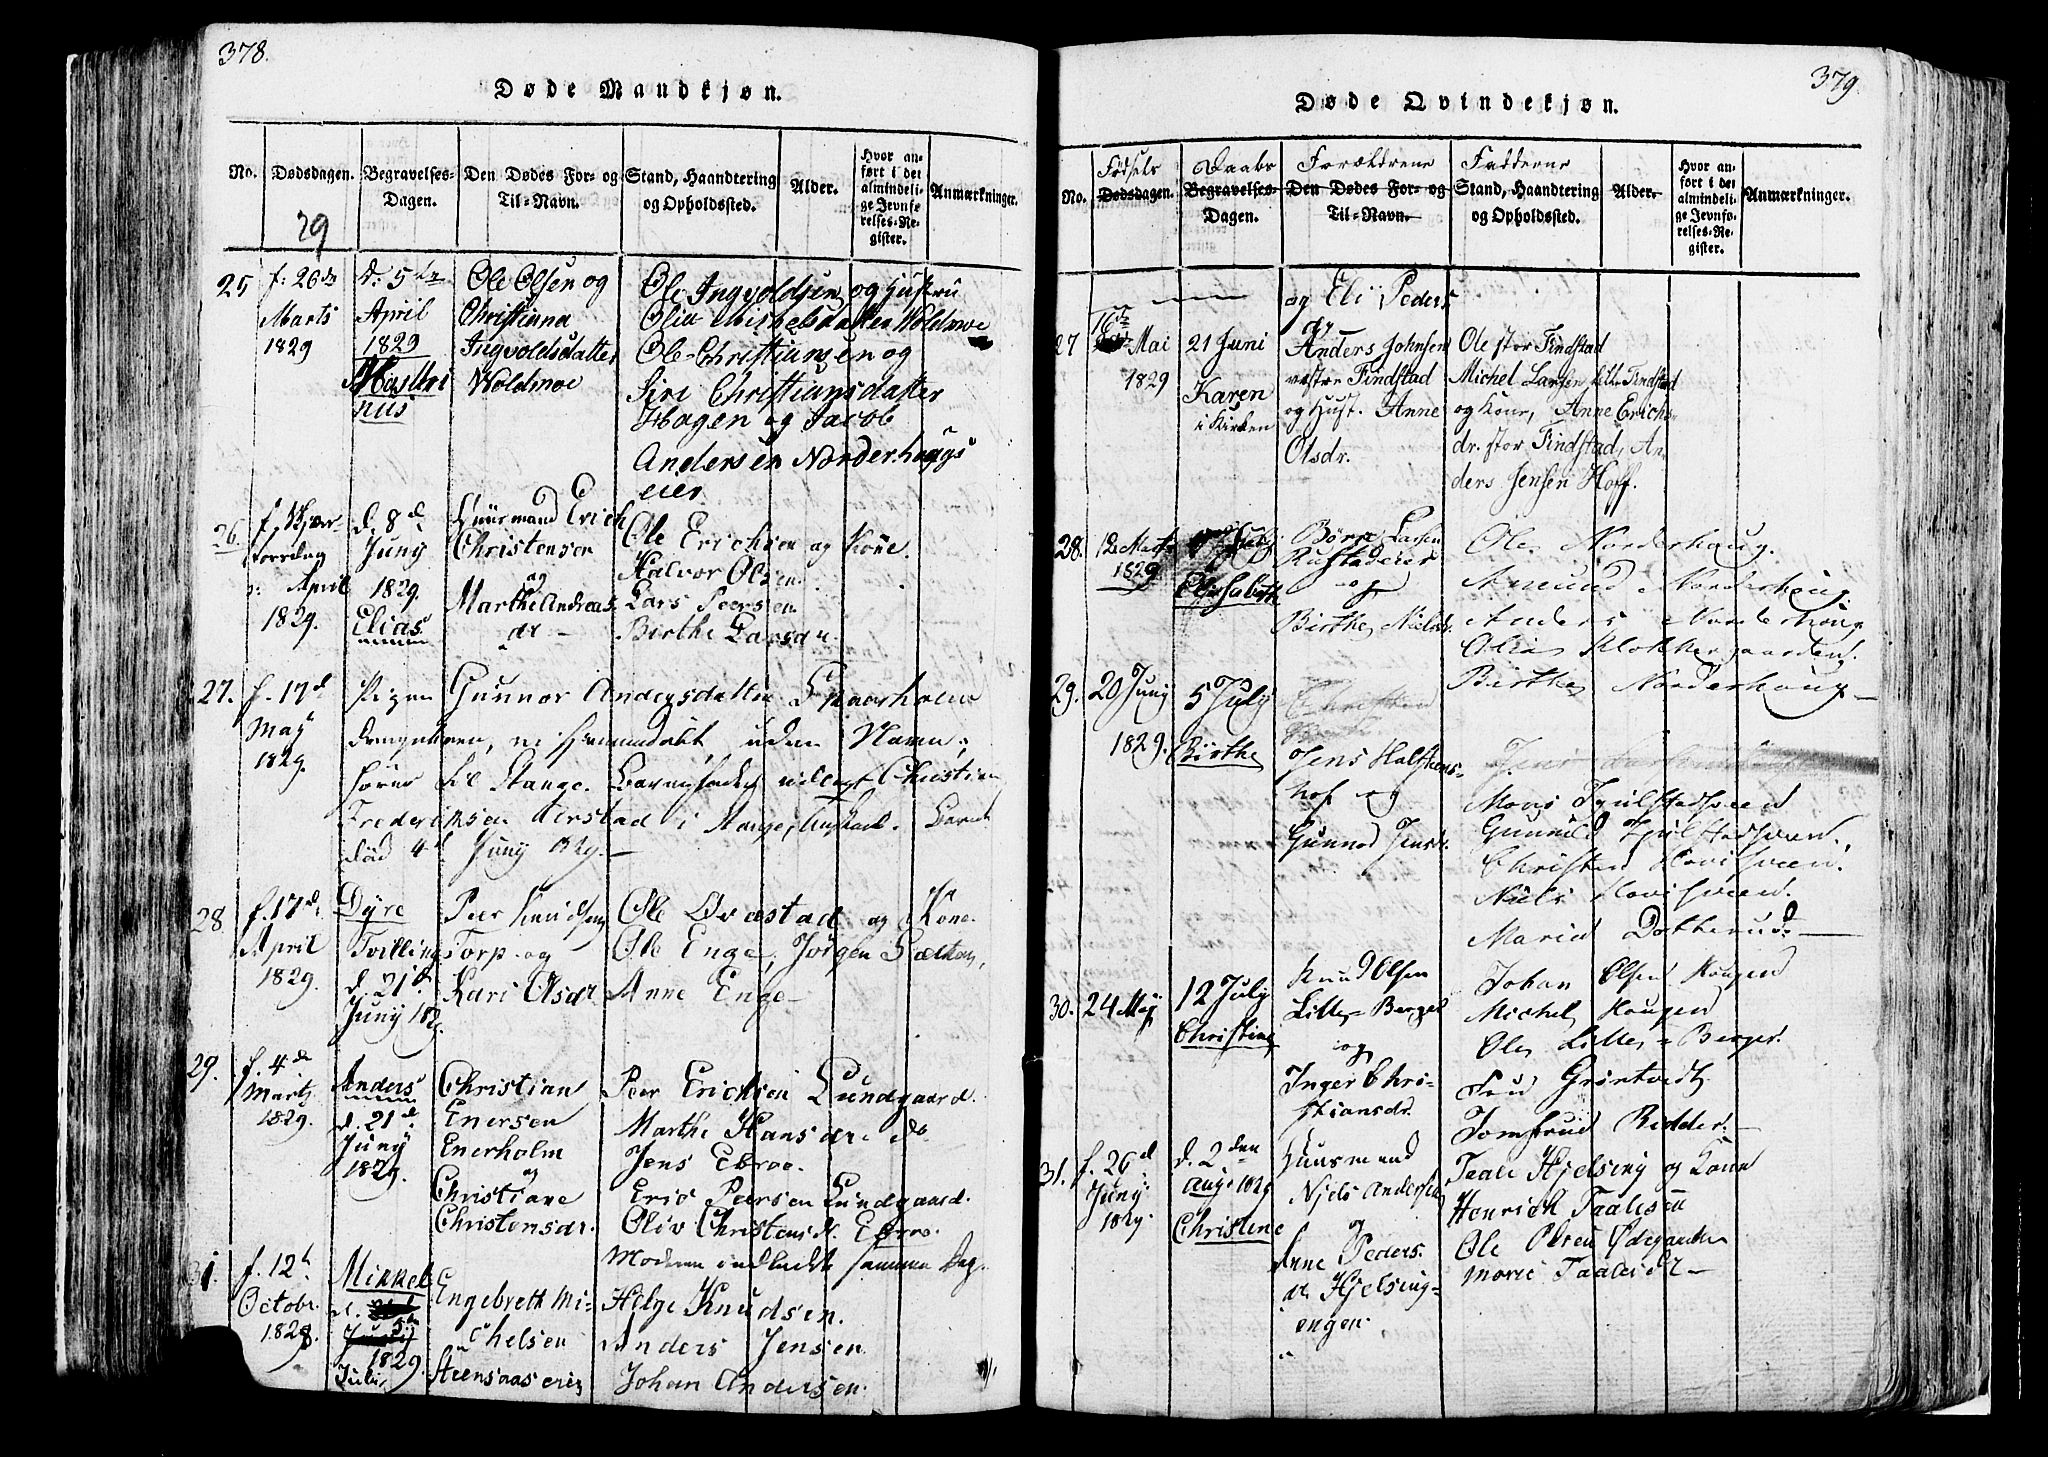 378.
Døde Mandkjøn.
No.
Dødsdagen.
Begravelses-
Dagen.
Den Dødes For- og
Til-Navn.
Stand, Haandtering
og Opholdssted.
Alder.
Hvor an-
ført i det
almindeli-
ge Jevnfø-
relses-Re-
gister.
Anmærkninger.
29
25
f. 26de
Marts
1829
D. 5te
April
1829
nus
Ole Olsen og
Christiana
Ingvoldsdatter
Woldmoe
Ole Ingvoldsen og Hustru
Olia Michelsdatter Woldmoe
Ole Christiansen og
Siri Christiansdatter
Hagen og Jacob
Andersen Norderhaugs
eier
26.
f. Skjær-
torsdag
April
1829.
d. 8d
Juny
1829.
Elias
Huusmand Erich
Christensen
og
Marthe Andreas
dr
Ole Erichsen og Kone.
Halvor Olsen.
Lars Peersen
Birthe Larsdr.
27.
f. 17d
May
1829.
Pigen Gunnor Andersdatter
drengebarn, uden Navn;
hører til Stange. Barnefader udlagt Christian
Frederiksen i Stange, Barnet
død 4d Juny 1829.
28
f. 17d.
April
1829.
Dyre
Tvilling
d. 21d
Juny 1829.
Peer Knudsen
Torp og
Kari Olsdr.
Ole Ovastad og Kone.
Ole Enge, Jørgen
Anne Enge
29.
f. 4de
Martz
1829.
Anders
d. 21d
Juny
1829.
Christian
Enersen
Enerholm
og
Christiane
Christensdr.
Peer Erichsen Lundgaard.
Marthe Hansdr. do
Jens Ebroe.
Eric Peersen Lundgaard.
Oliv Christensdr. Ebroe.
Moderen indledt samme Dag.
31.
f. 12te
Octobr.
1828.
Mikkel
d.
5te
1829.
Juli
Engebreth Mi-
chelsen
Steensaaseries
Helge Knudsen.
Anders Jensen
Johan Andersen.
379.
Døde Qvindekjøn.
No.
Fødsels
Dødsdagen.
Daabs
Begravelses-
Dagen.
Forældrene
Den Dødes For- og
Til-Navn.
Fadderne
Stand, Haandtering
og Opholdssted.
Alder.
Hvor an-
ført i det
almindeli-
ge Jevnfø-
relses-Re-
gister.
Anmærkninger.
og Eli Peders
dr
27
16de
Mai
1829
21 Juni
Karen
i Kirken
Anders Johnsen
vestre Findstad
og Hust. Anne
Olsdr.
Ole stor Findstad
Michel Larsen lille Findstad
og Kone, Anne Erichs-
dr. stor Findstad, An
ders Jensen Hoff.
28.
12 Marts
1829
July
Elisabeth
Børre Larsen
Rustaderer
og
Birthe Nielsdr.
Ole Norderhaug.
Amund Norderhaug.
Anders Norderhaug
Olia Klokkergaarden.
Birthe Norderhaug
29.
20 Juny
1829.
5 July
Birthe
Christen
Jens Halstens-
hof og
Gunnor Jensdr.
Jens
Mons Tjulstadsveen
Gunnild Tjulstadsveen.
Christen Hovisveen.
Niels Hovisveen.
Maria Dotterud.
30.
24 May
12 July
Christine
Knud Olsen
Lille-Berger
og
Inger Chri-
stiansdr.
Johan Olsen Haugen
Michel Haugen
Ole Lille-Berger.
Fru Grøntvedt
Jomfrud Ridder.
31.
f. 26d
Juny
1829.
d. 2den
Aug. 1829
Christine
Huusmand
Niels Andersen
og
Anne Peders
dr Hjelsing-
engen.
Taale Hjelsing og Kone
Henrich Taalesen
Ole Olsen Ødegaarden
Marie Taalesdr